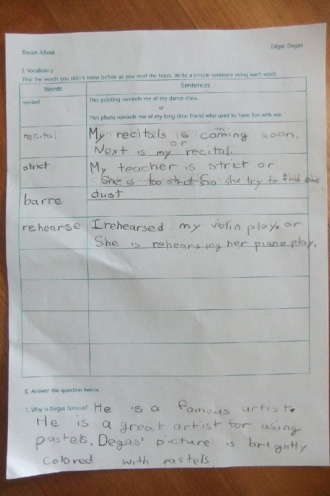 Edgar Degas
I. Vocabulary
Find the words you didn't know before as you read the book. Write a simple sentence using each word.
Words
Sentences
This painting reminds me of my dance class.
or
This photo reminds me of my long time friend who used to have fun with me.
recital
My recitals is coming soon.
or
Next is my recital
strict
My teacher is strict or
She is too strict so she try to find one
dust
barre
rehearse
I rehearsed my violin play. or
She is rehearsing her piano play.
II. Answer the question below.
1. Why is Degas famous? He is a famous artist.
He is a great artist for using
pastels. Degas' picture is brightly
colored with pastels